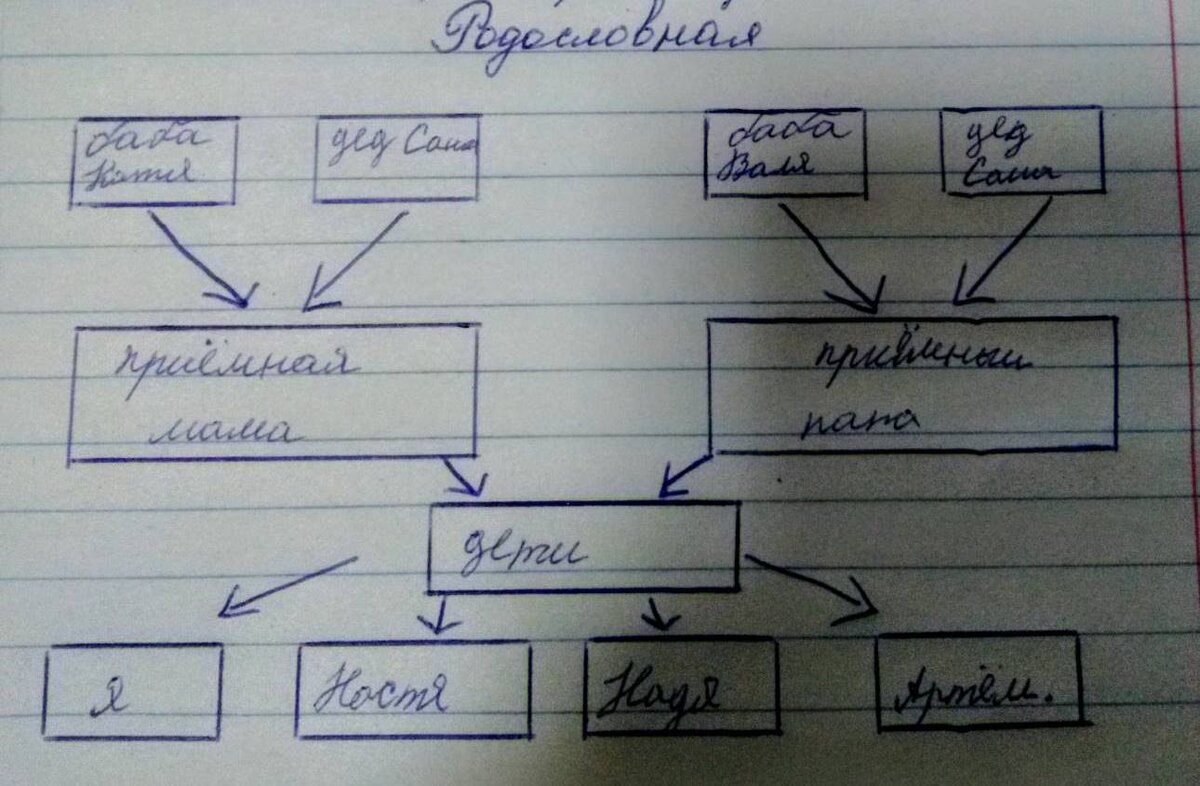 Родословная
баба
Катя
дед Саша
баба
Валя
дед
Саша
приёмная
мама
приёмный
папа
дети
Я
Настя
Надя
Артём.